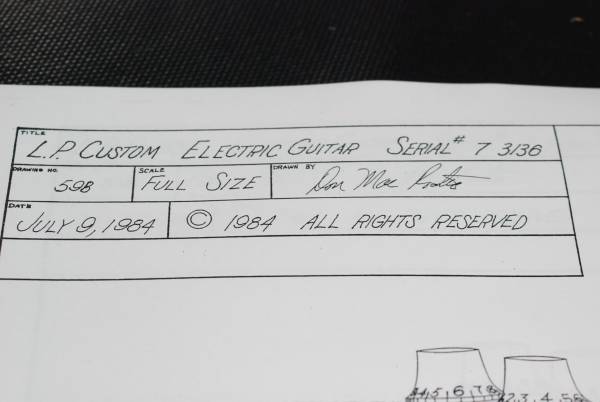 TITLE
L.P. CUSTOM ELECTRIC GUITAR SERIAL# 7 3136
DRAWING NO. SCALE DRAWN BY
598 FULL SIZE Don Mac
DATE
JULY 9, 1984 © 1984 ALL RIGHTS RESERVED